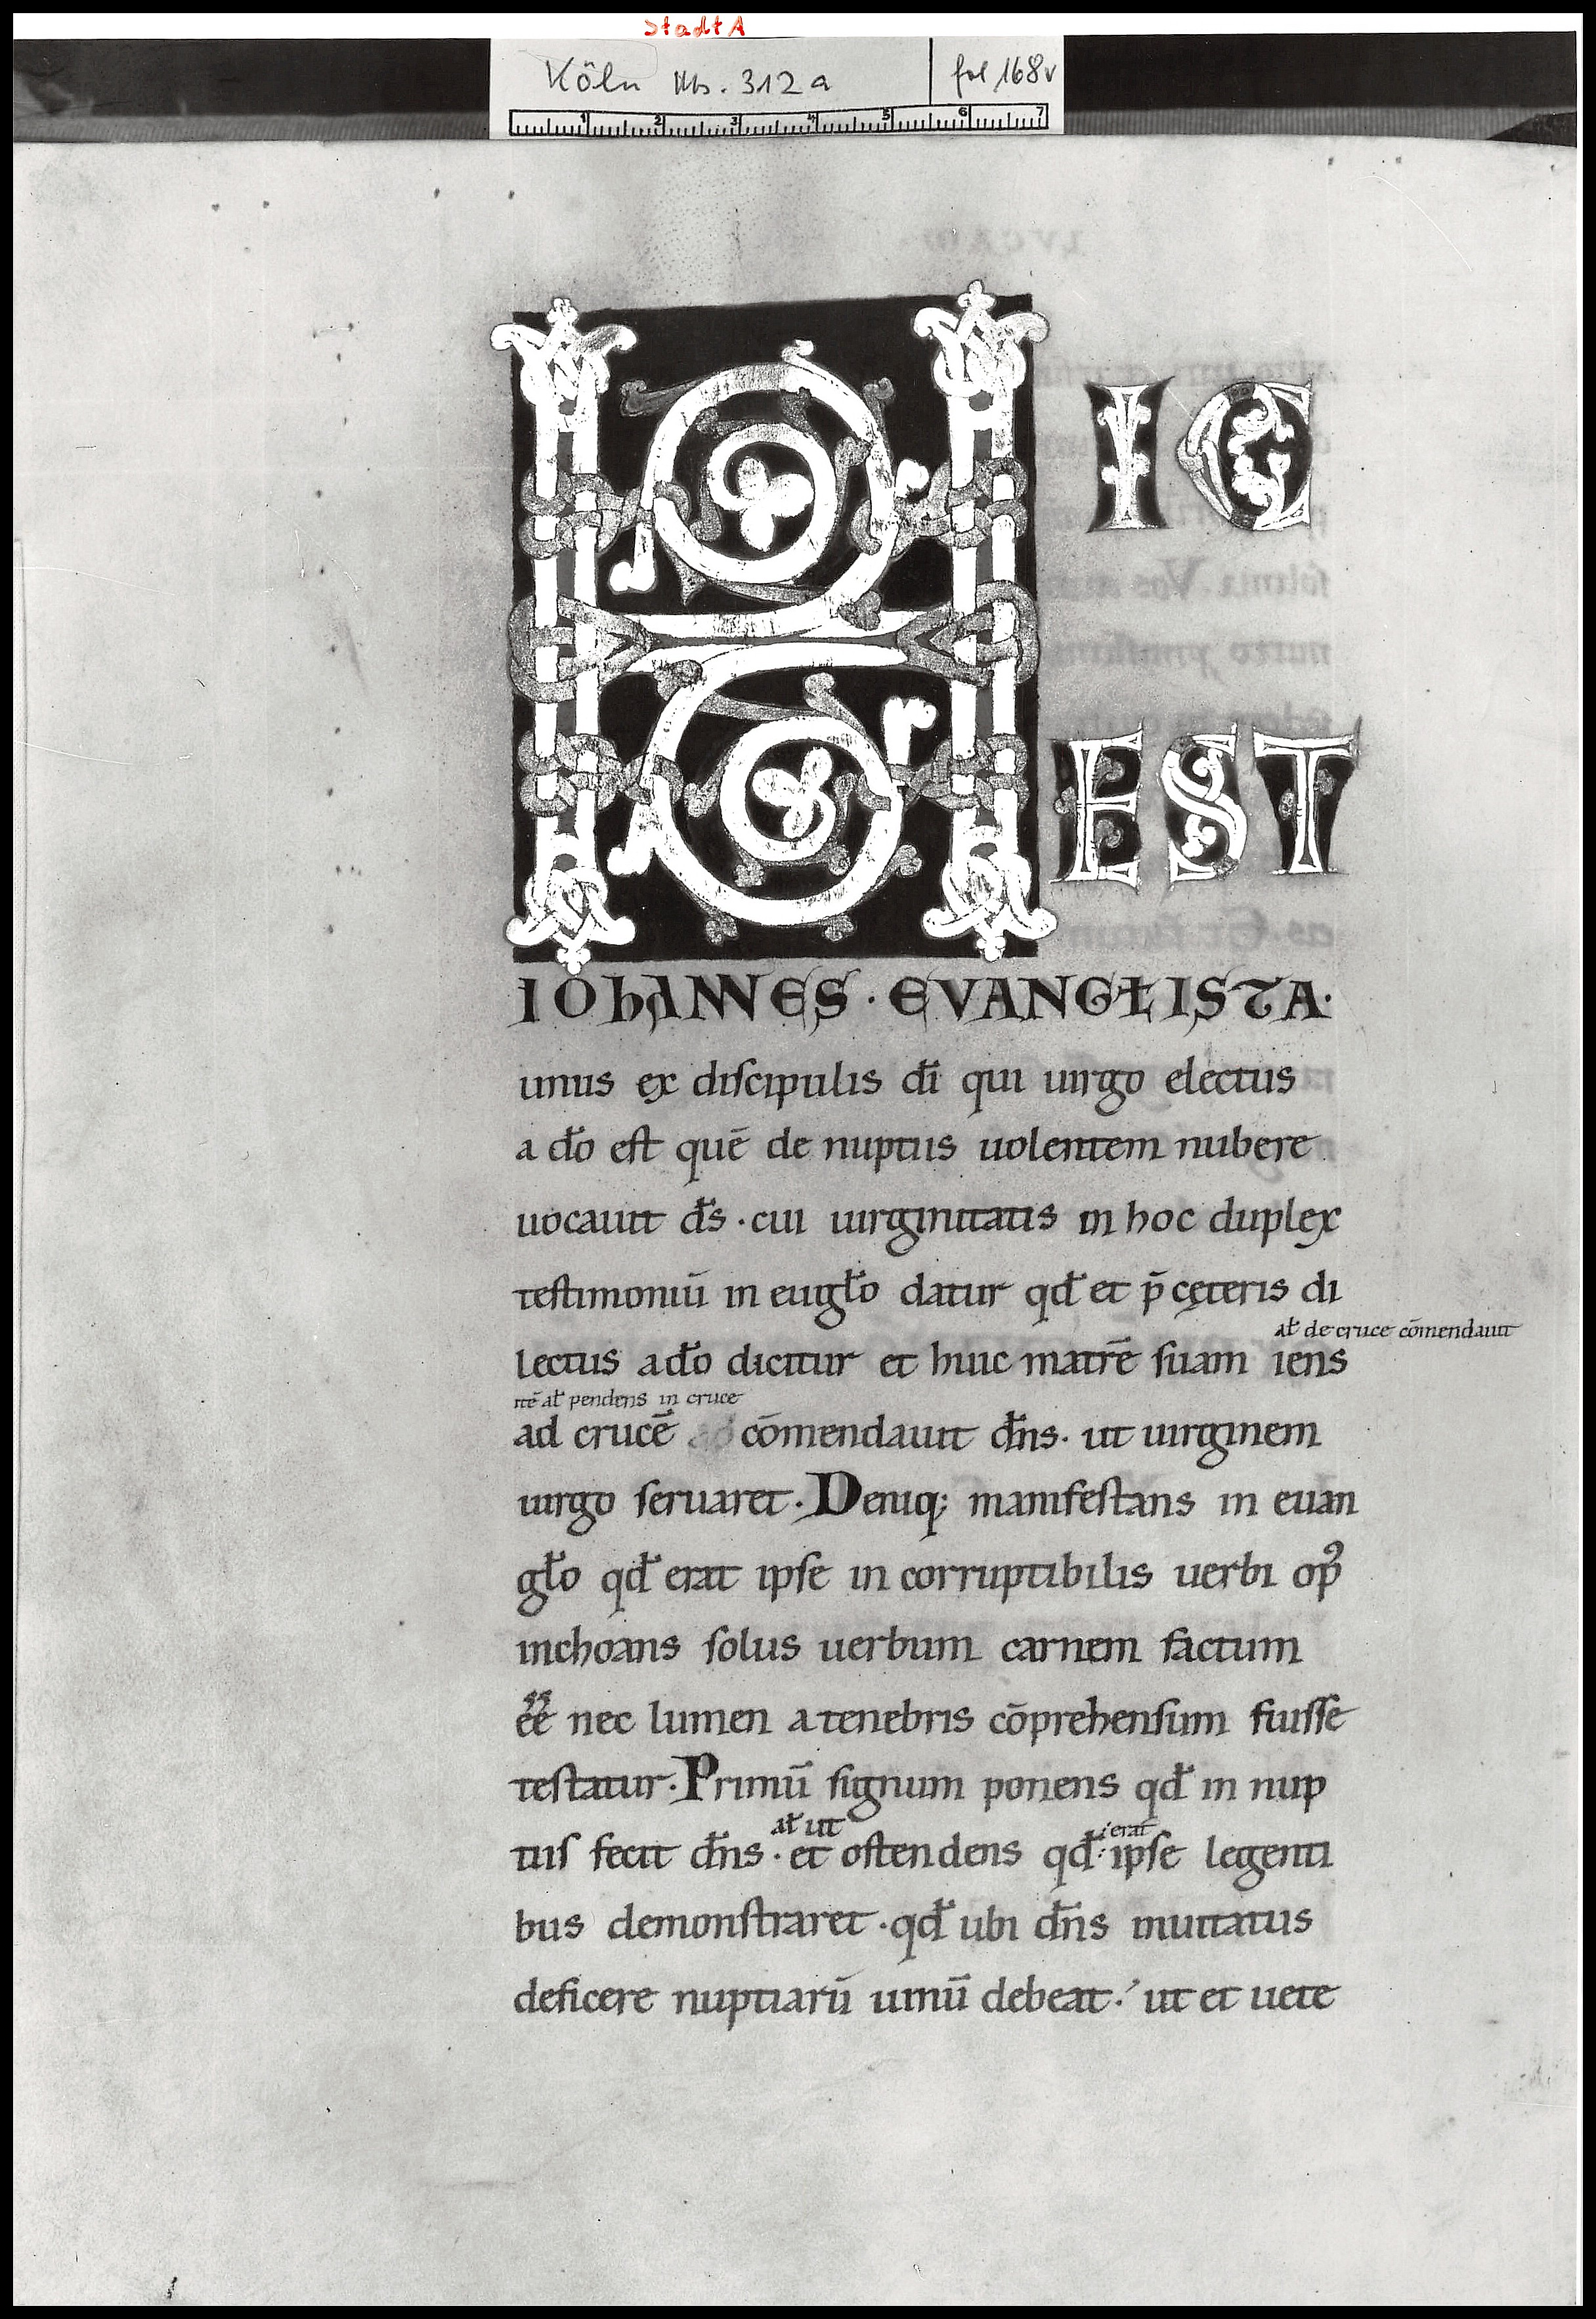 StadtA
Köln Hs. 312a fol 168v
1 2 3 4 5 6 7
HIC
EST
IOhANNES · EVANGLISTA·
unus ex diſcipulis dī qui uirgo electus
a do̅ eſt quē de nuptiis uolentem nubere
uocauit ds̅ · cui uirginitatis in hoc duplex
teſtimoniū in eugl̅o datur qd̅ et p̄ cęteris di
al̅ de cruce cōmendauit
lectus a do̅ dicitur et huic matrē ſuam iens
itē al̅ pendens in cruce
ad crucē cōmendauit dn̅s· ut uirginem
uirgo ſeruaret· Deniq; manifeſtans in euan
gl̅o qd̅ erat ipſe in corruptibilis uerbi opꝰ
inchoans ſolus uerbum carnem factum
ee̅ nec lumen a tenebris cōprehenſum fuiſſe
teſtatur· Primū ſignum ponens qd̅ in nup
al̅ ut erat
tiiſ fecit dn̅s · et oſtendens qd̅ ipſe legenti
bus demonſtraret · qd̅ ubi dn̅s inuitatus
deficere nuptiarū uinū debeat· ut et uete